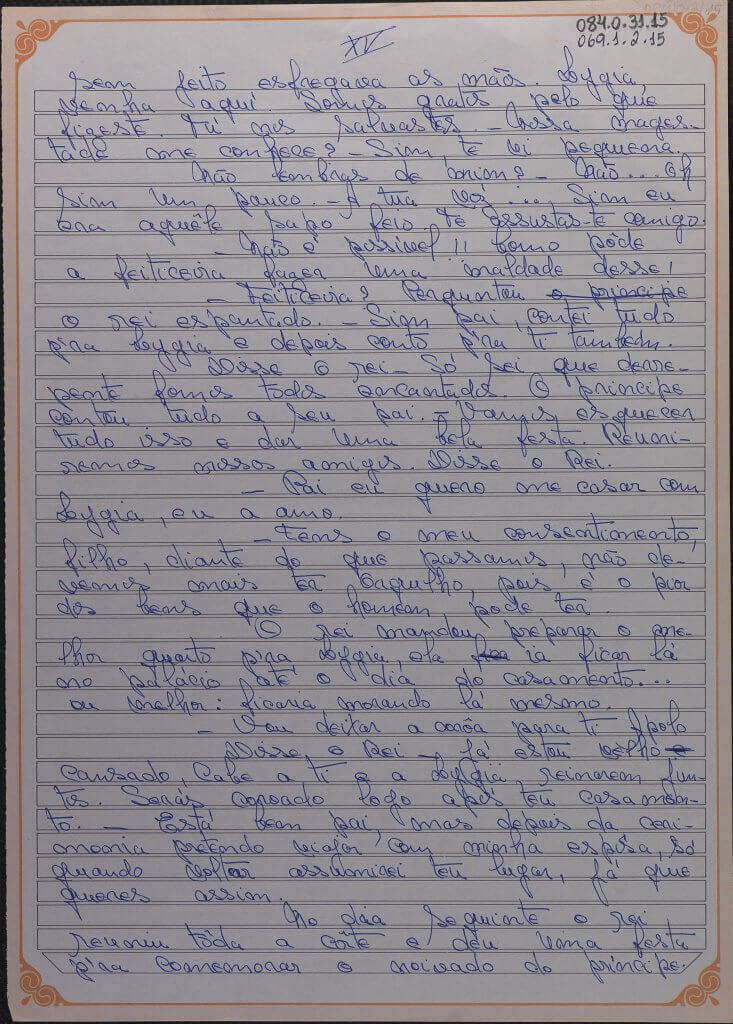 084.0.31.15
069.1.2.15
XV
sem jeito esfregava as mãos. Lygia
venha aqui. Somos gratos pelo que
fizeste. Tú nos salvastes. - Vossa mages-
tade me conhece? - Sim, te vi pequena.
Não lembras de mim? - Não... Oh
sim um pouco. - A tua voz... Sim eu
era aquêle sapo feio, te assustas-te comigo.
- Não é possível!! Como pôde
a feiticeira fazer uma maldade dessa!
- Feiticeira? Perguntou o principe
o rei espantado. - Sim pai, contei tudo
p'ra Lygia e depois conto p'ra ti também.
Disse o rei - Só sei que derre-
pente fomos todos encantados. O principe
contou tudo a seu pai. - Vamos esquecer
tudo isso e dar uma bela festa. Reuni-
remos nossos amigos. Disse o Rei.
- Pai eu quero me casar com
Lygia, eu a amo.
- Tens o meu consentimento,
filho, diante do que passamos, não de-
vemos mais ter orgulho, pois é o pior
dos bens que o homem pode ter.
O rei mandou preparar o me-
lhor quarto p'ra Lygia, ela ia ficar lá
no palácio até o dia do casamento...
ou melhor: ficaria morando lá mesmo.
- Vou deitar a corôa para ti Apolo
Disse o Rei - Já estou velho e
cansado, Cabe a ti e a Lygia, reinarem jun-
tos. Serás coroado logo após teu casamen-
to. - Está bem pai, mas depois da ceri-
monia pretendo viajar com minha espôsa, só
quando voltar assumirei teu lugar, já que
queres assim.
No dia seguinte o rei
reuniu tôda a côrte e deu uma festa
p'ra comemorar o noivado do príncipe.